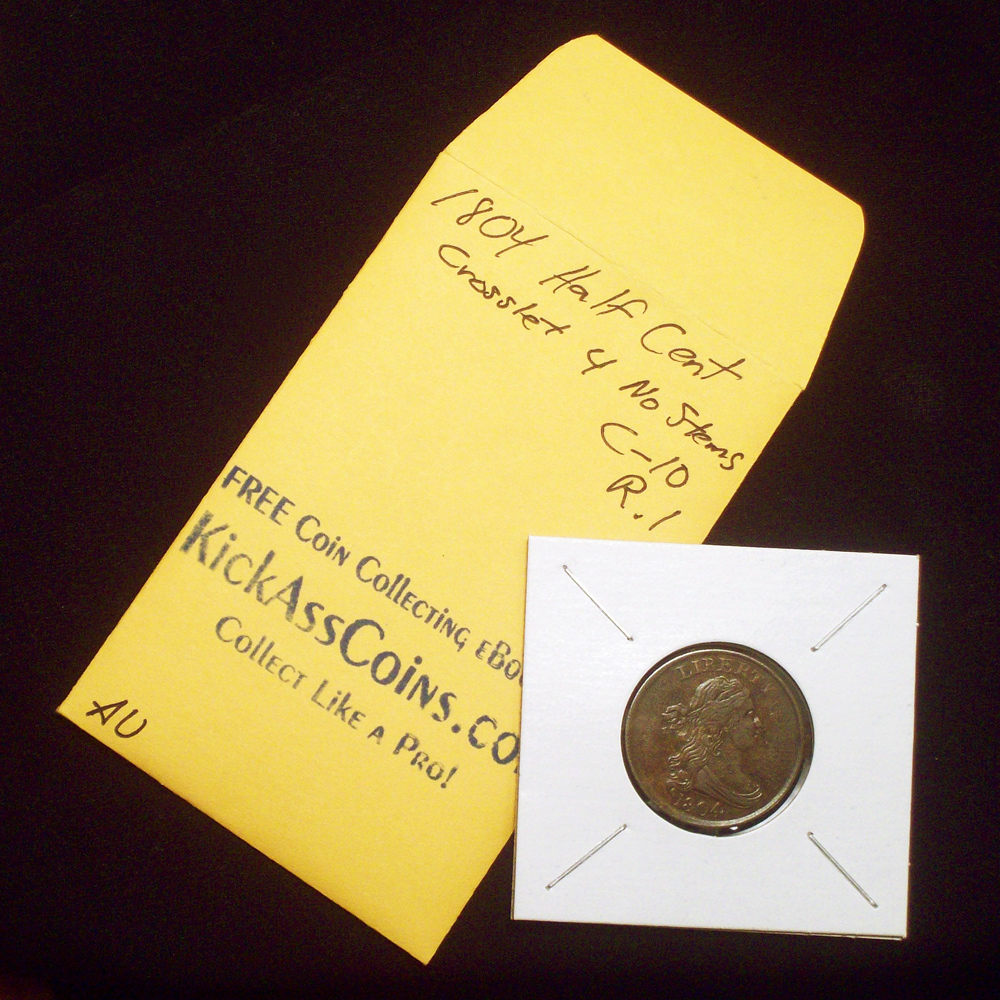 1804 Half Cent
Crosslet 4 No Stems
C-10
R.1
FREE Coin Collecting eBo
KickAssCoins.co
Collect Like a Pro!
AU
LIBERTY
1804